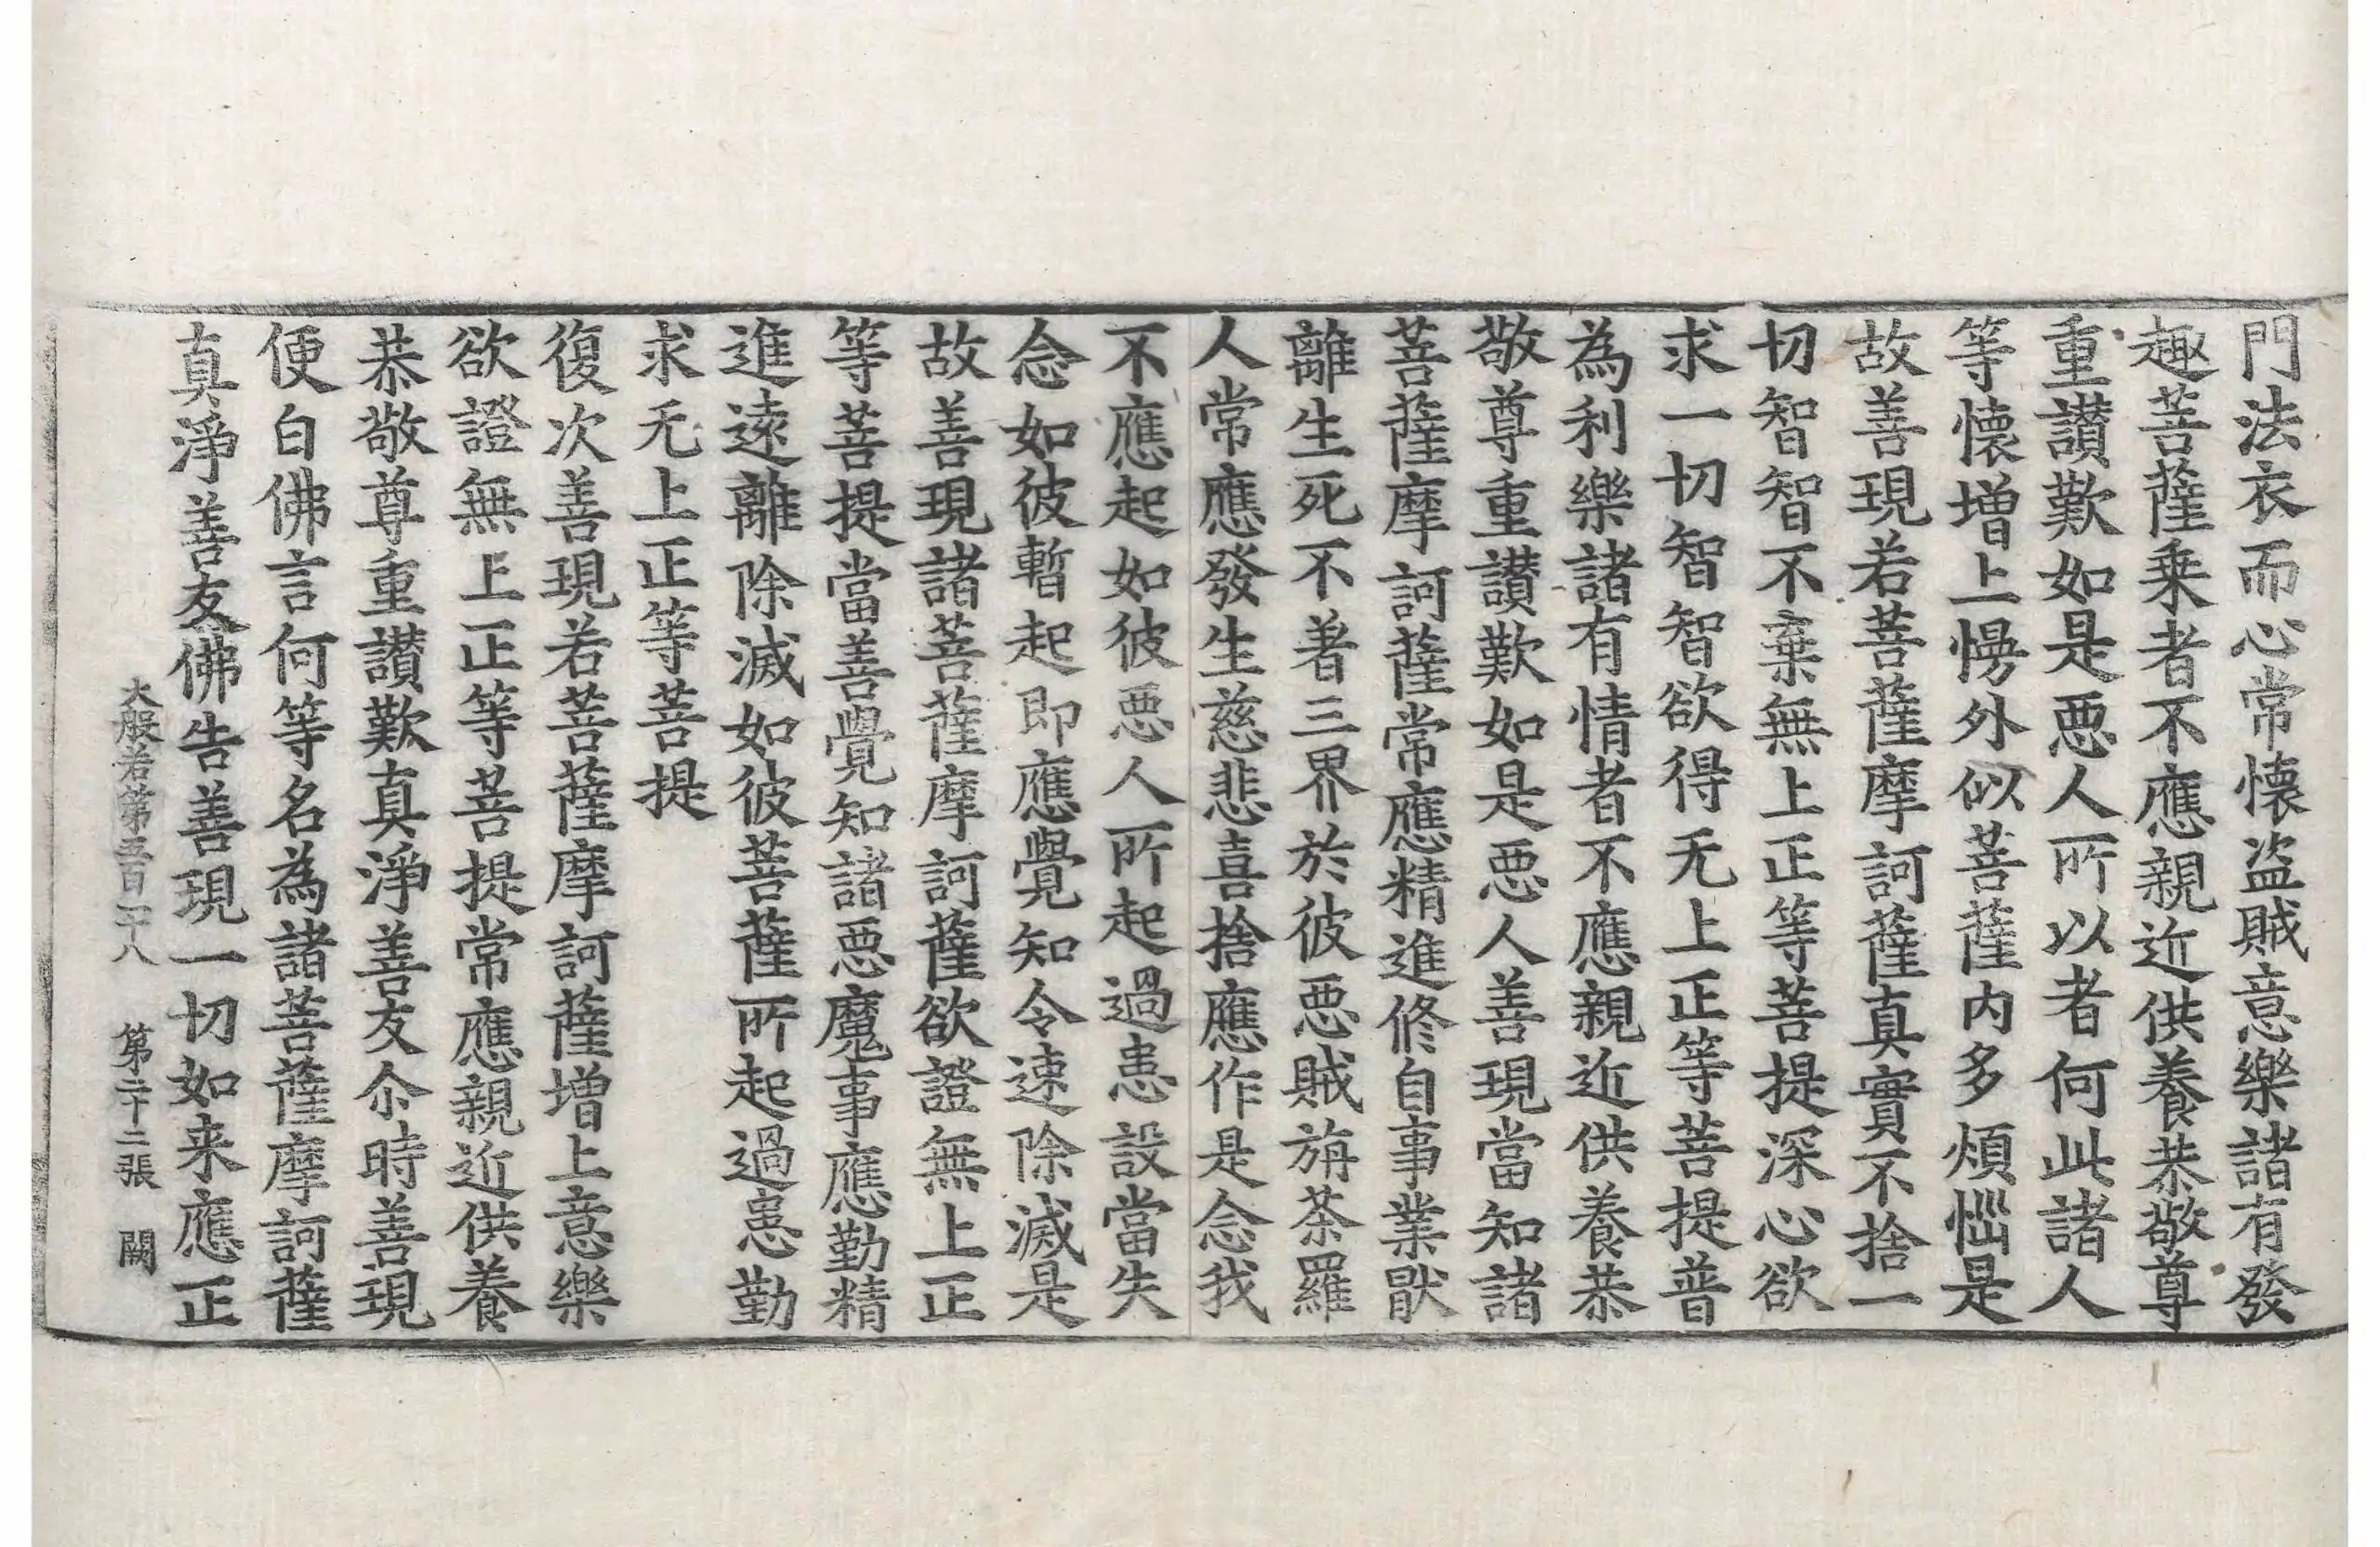 門法衣而心常懷盜賊意樂諸有發
趣菩薩乗者不應親近供養恭敬尊
重讃歎如是惡人所以者何此諸人
等懷增上慢外似菩薩內多煩惱是
故善現若菩薩摩訶薩真實不捨一
切智智不棄無上正等菩提深心欲
求一切智智欲得无上正等菩提普
為利樂諸有情者不應親近供養恭
敬尊重讃歎如是惡人善現當知諸
菩薩摩訶薩常應精進修自事業猒
離生死不著三界於彼惡賊旃荼羅
人常應發生慈悲喜捨應作是念我
不應起如彼惡人所起過患設當失
念如彼暫起即應覺知令速除滅是
故善現諸菩薩摩訶薩欲證無上正
等菩提當善覺知諸惡魔事應勤精
進遠離除滅如彼菩薩所起過患勤
求无上正等菩提
復次善現若菩薩摩訶薩增上意樂
欲證無上正等菩提常應親近供養
恭敬尊重讃歎真淨善友尒時善現
便白佛言何等名為諸菩薩摩訶薩
真淨善友佛告善現一切如来應正
大般若第五百一十八 第二十二張 闕